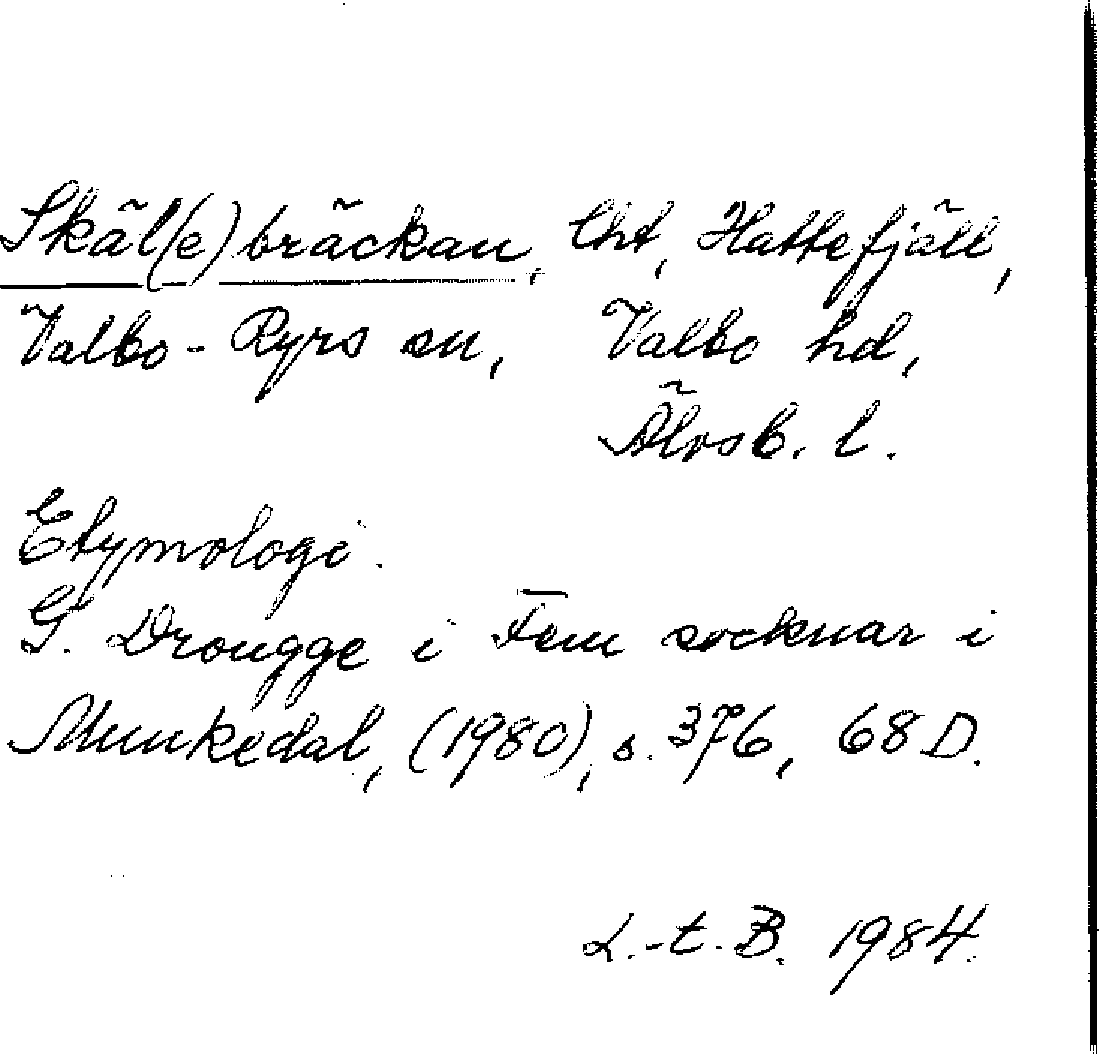 Skäl(e)bräckan, lht, Hattefjäll,
Valbo-Ryrs sn, Valbo hd,
Älvsb. l.
Etymologi.
G. Drougge i Fem socknar i
Munkedal, (1980), s. 376, 68D.
L.-t. B. 1984.